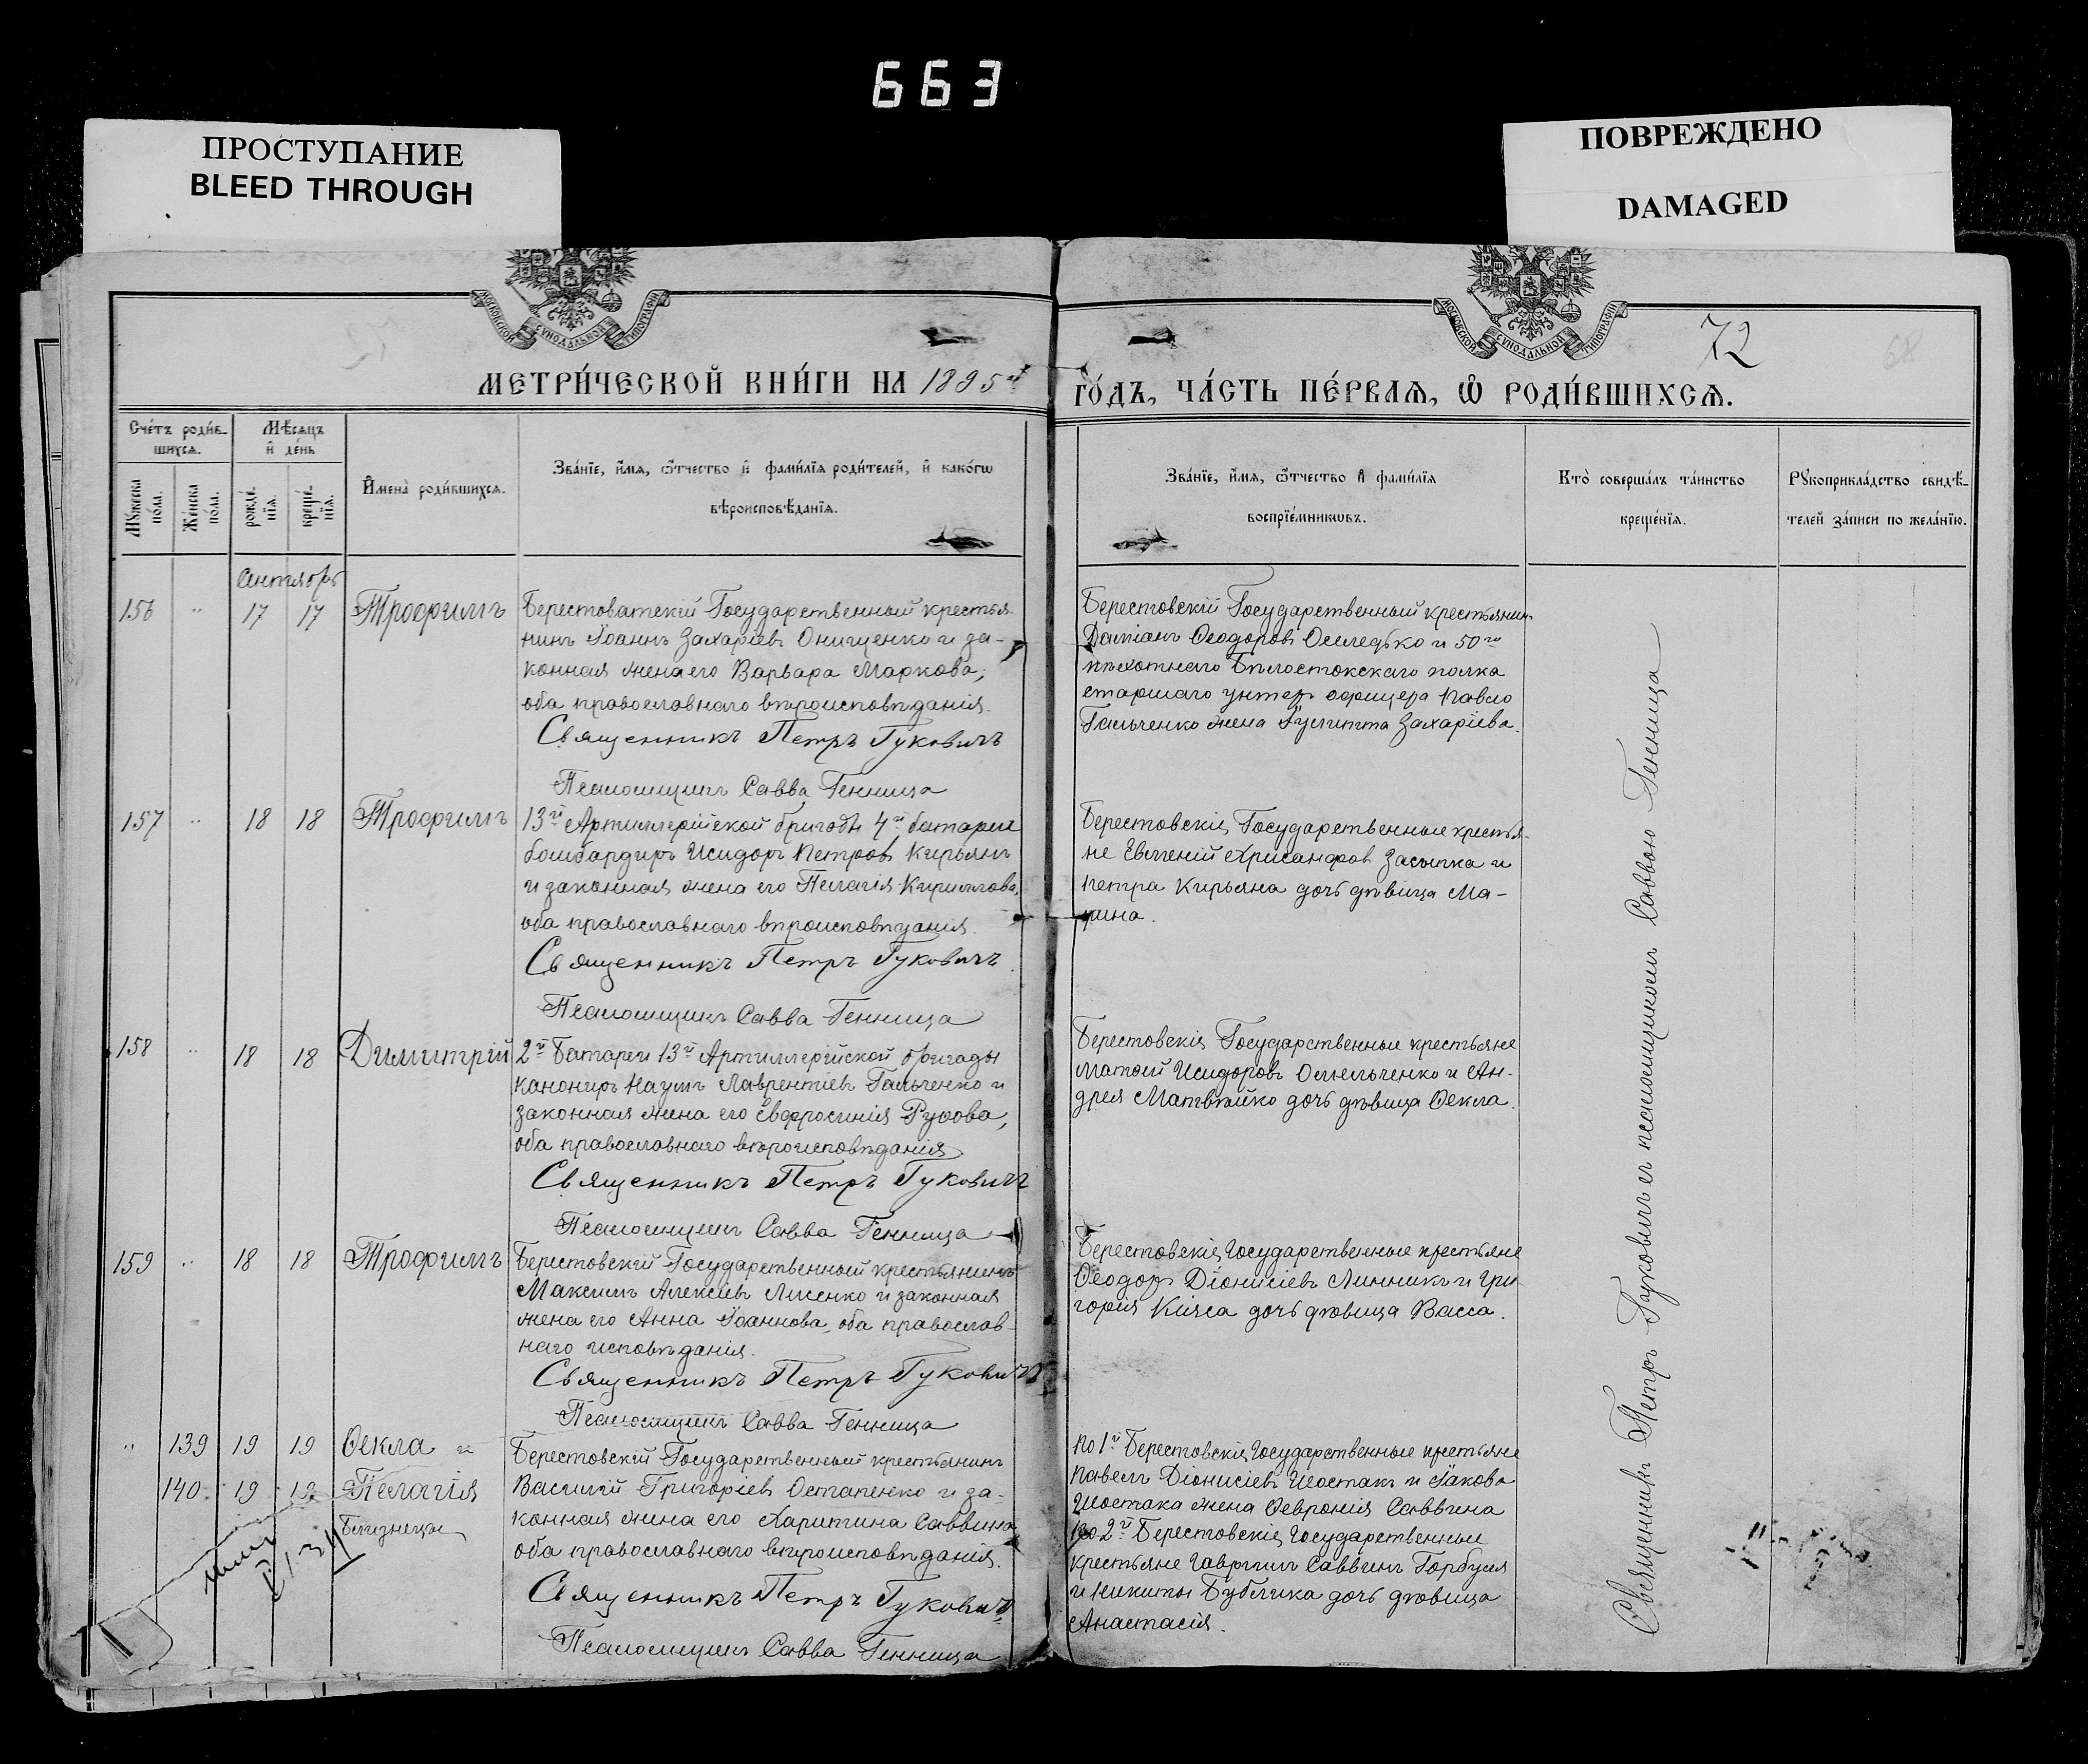 663
ПРОСТУПАНИЕ
BLEED THROUGH
ПОВРЕЖДЕНО
DAMAGED
МОСКОВСКОЙ СУНОДАЛЬНОЙ ТИПОГРАФІИ
МОСКОВСКОЙ СУНОДАЛЬНОЙ ТИПОГРАФІИ
72
68
МЕТРИ́ЧЕСКОЙ КНИ́ГИ НА 1895й
ГО́ДЪ, ЧА́СТЬ ПЕ́РВАѦ, Ѡ РОДИ́ВШИХСѦ.
Сче́тъ роди́в-
шихсѧ.
Мꙋжеска по́ла.
Же́нска по́ла.
Мѣ́сѧцъ
и҆ де́нь
рожде́нїѧ.
креще́нїѧ.
И҆мена̀ роди́вшихсѧ.
Зва́нїе, и҆́мѧ, ѻ҆́тчество и҆ фами́лїѧ роди́телей, и҆ како́гѡ
вѣроисповѣ́данїѧ.
Зва́нїе, и҆́мѧ, ѻ҆́тчество и҆ фами́лїѧ
воспрїе́мникѡвъ.
Кто̀ соверша́лъ та́инство
креще́нїѧ.
Рꙋкоприкла́дство свидѣ́-
телей за́писи по жела́нїю.
Сентябрь
156 " 17 17 Трофимъ
Берестоватскій Государственный крестья-
нинъ Іоаннъ Захаріевъ Онищенко и за-
конная жена его Варвара Маркова,
оба православнаго вѣроисповѣданія.
Священникъ Петръ Гуковичъ
Псаломщикъ Савва Генница
Берестовскій Государственный крестьянин
Даміанъ Ѳеодоровъ Оселедько и 50го
пѣхотнаго Бѣлостокскаго полка
старшаго унтеръ офицера Павло
Гальченко жена Іулитта Захаріева.
157 " 18 18 Трофимъ
13й Артиллерійской бригады 4й батареи
бомбардиръ Исидоръ Петровъ Кирьянъ
и законная жена его Пелагія Кириллова,
оба православнаго вѣроисповѣданія.
Священникъ Петръ Гуковичъ
Псаломщикъ Савва Генница
Берестовскіе Государственные крестья-
не Евгеній Хрисанфовъ Засыпка и
Петра Кирьяна дочь дѣвица Ма-
рина.
158 " 18 18 Димитрій
2й Батареи 13й Артиллерійской бригады
канониръ Наумъ Лаврентіевъ Гальченко и
законная жена его Евфросинія Руфова,
оба православнаго вѣроисповѣданія
Священникъ Петръ Гуковичъ
Псаломщикъ Савва Генница
Берестовскіе Государственные крестьяне
Матѳей Исидоровъ Омельченко и Ан-
дрея Матвѣйко дочь дѣвица Ѳекла.
159 " 18 18 Трофимъ
Берестовскій Государственный крестьянинъ
Максимъ Алексіевъ Лисенко и законная
жена его Анна Іоаннова, оба православ-
наго исповѣданія.
Священникъ Петръ Гуковичъ
Псаломщикъ Савва Генница
Берестовскіе Государственные крестьяне
Ѳеодоръ Діонисіевъ Линникъ и Гри-
горія Кіяса дочь дѣвица Васса.
" 139 19 19 Ѳекла и
140 19 19 Пелагія
близнецы
Берестовскій Государственный крестьянинъ
Василій Григоріевъ Остапенко и за-
конная жена его Харитина Саввина
оба православнаго вѣроисповѣданія.
Священникъ Петръ Гуковичъ
Псаломщикъ Савва Генница
По 1й Берестовскіе Государственные крестьяне
Павелъ Діонисіевъ Шостакъ и Іакова
Шостака жена Ѳевронія Саввина
По 2й Берестовскіе Государственные
крестьяне Гавріилъ Саввинъ Горбуля
и Никиты Бублика дочь дѣвица
Анастасія.
Священникъ Петръ Гуковичъ съ псаломщикомъ Саввою Генница